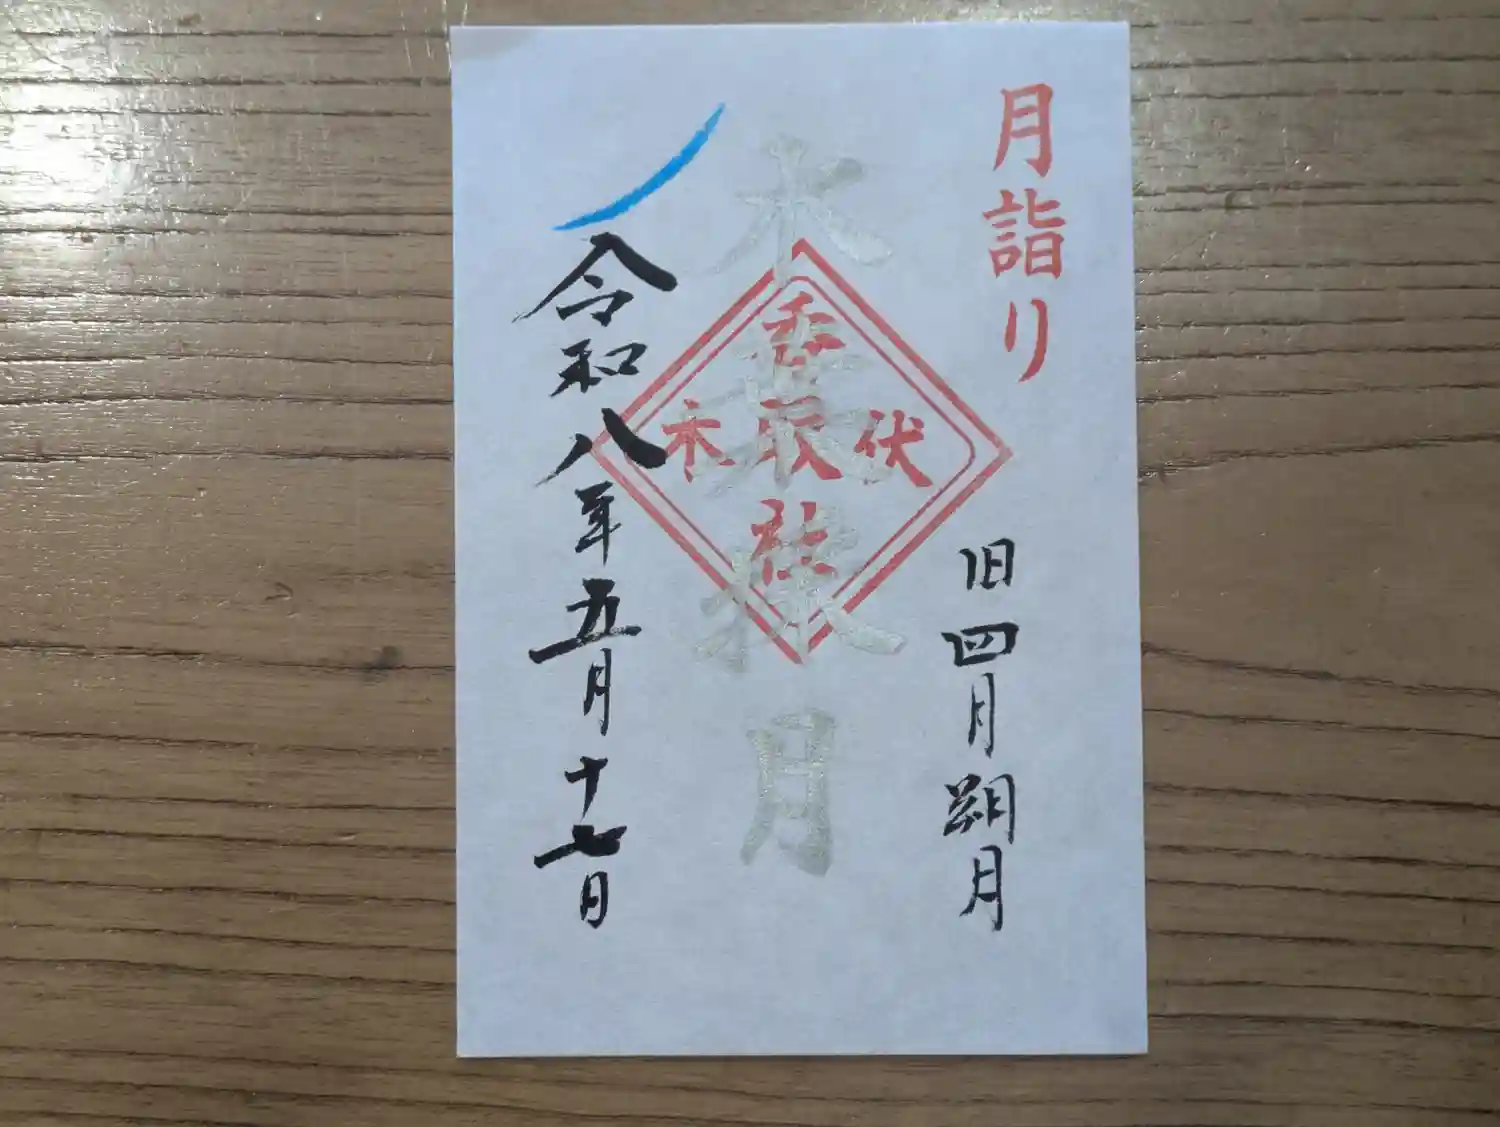 月詣り
旧四月朔月
木葉採月
伏木
香取社
令和八年五月十七日